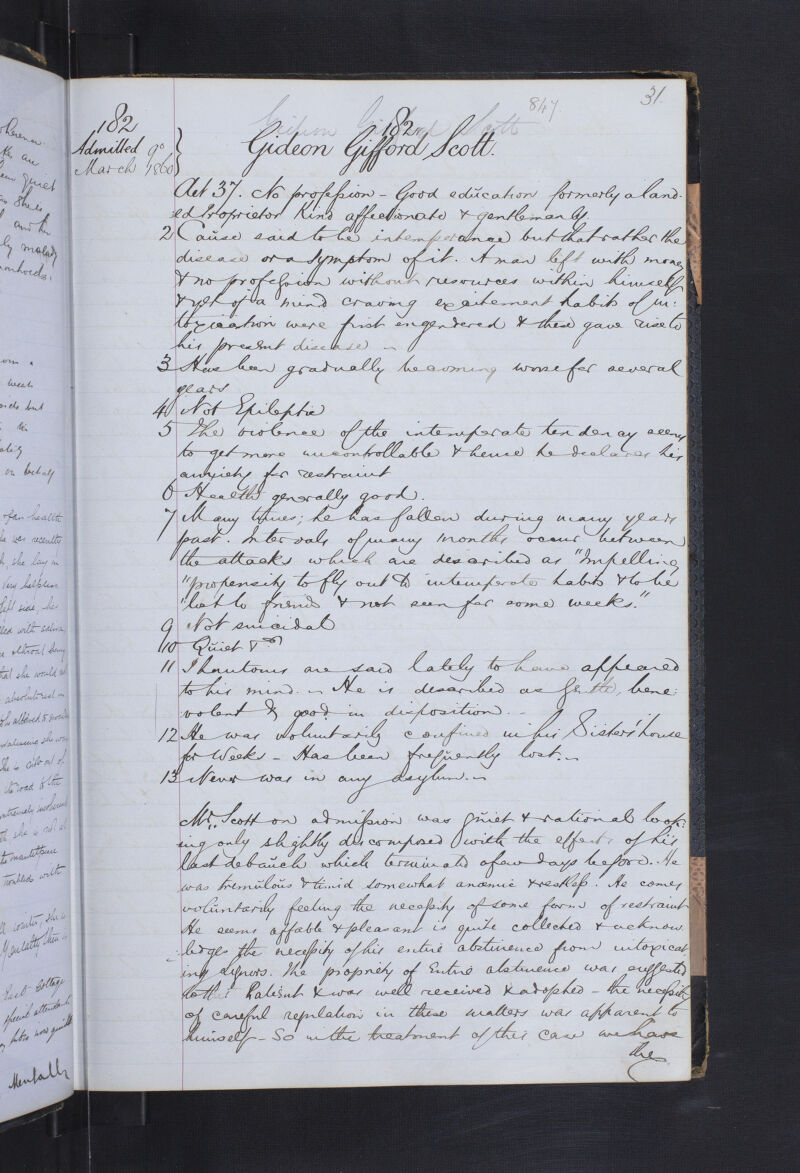 31.
847
182
182
Admitted
March 9º 1860
Gideon Gifford Scott
Gideon Gifford Scott.
Aet 37. No profession - Good education formerly a land-
ed Proprietor Kind affectionate & gentlemanly.
2 Cause said to be intemperance but that rather the
disease or a symptom of it. A man left with money
& no profession without resources within himself
& yet of a mind craving excitement habits of in:
toxication were first engendered & these gave rise to
his present disease -
3 Has been gradually becoming worse for several
years
4 Not Epileptic
5 The violence of the intemperate tendency seems
to get more uncontrollable & hence he declares his
anxiety for restraint
6 Health generally good.
7 Many times; he has fallen during many years
past. Intervals of many months occur between
the attacks which are described as "Impelling
"propensity to fly out to intemperate habits & to be
"lost to friends & not seen for some weeks."
9 Not suicidal
10 Quiet &c
11 Phantoms are said lately to have appeared
to his mind. - He is described as gentle, bene:
volent & good in disposition. -
12 He was voluntarily confined in his Sisters' house
for Weeks - Has been frequently lost. -
13 Never was in any asylum. -
Mr. Scott on admission was quiet & rational look:
ing only slightly discomposed with the effects of his
last debauch which terminated a few days before. He
was tremulous & timid somewhat anæmic & restless. He comes
voluntarily feeling the necessity of some form of restraint
He seems affable & pleasant is quite collected & acknow
ledges the necessity of his entire abstinence from intoxicat
ing liquors. The propriety of Entire abstinence was suggested
to this Patient & was well received & adopted - the necessity
of careful regulation in these matters was apparent to
himself - So in the treatment of this case we have
the